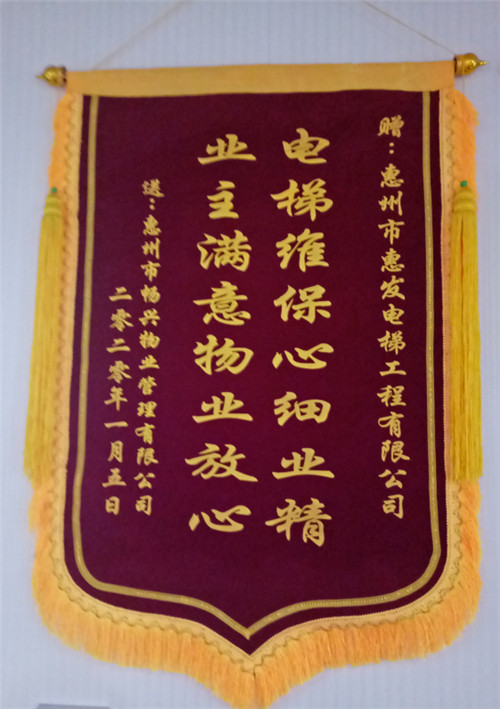 赠：惠州市惠发电梯工程有限公司
电梯维保心细业精
业主满意物业放心
送：惠州市杨兴物业管理有限公司
二零二零年一月五日